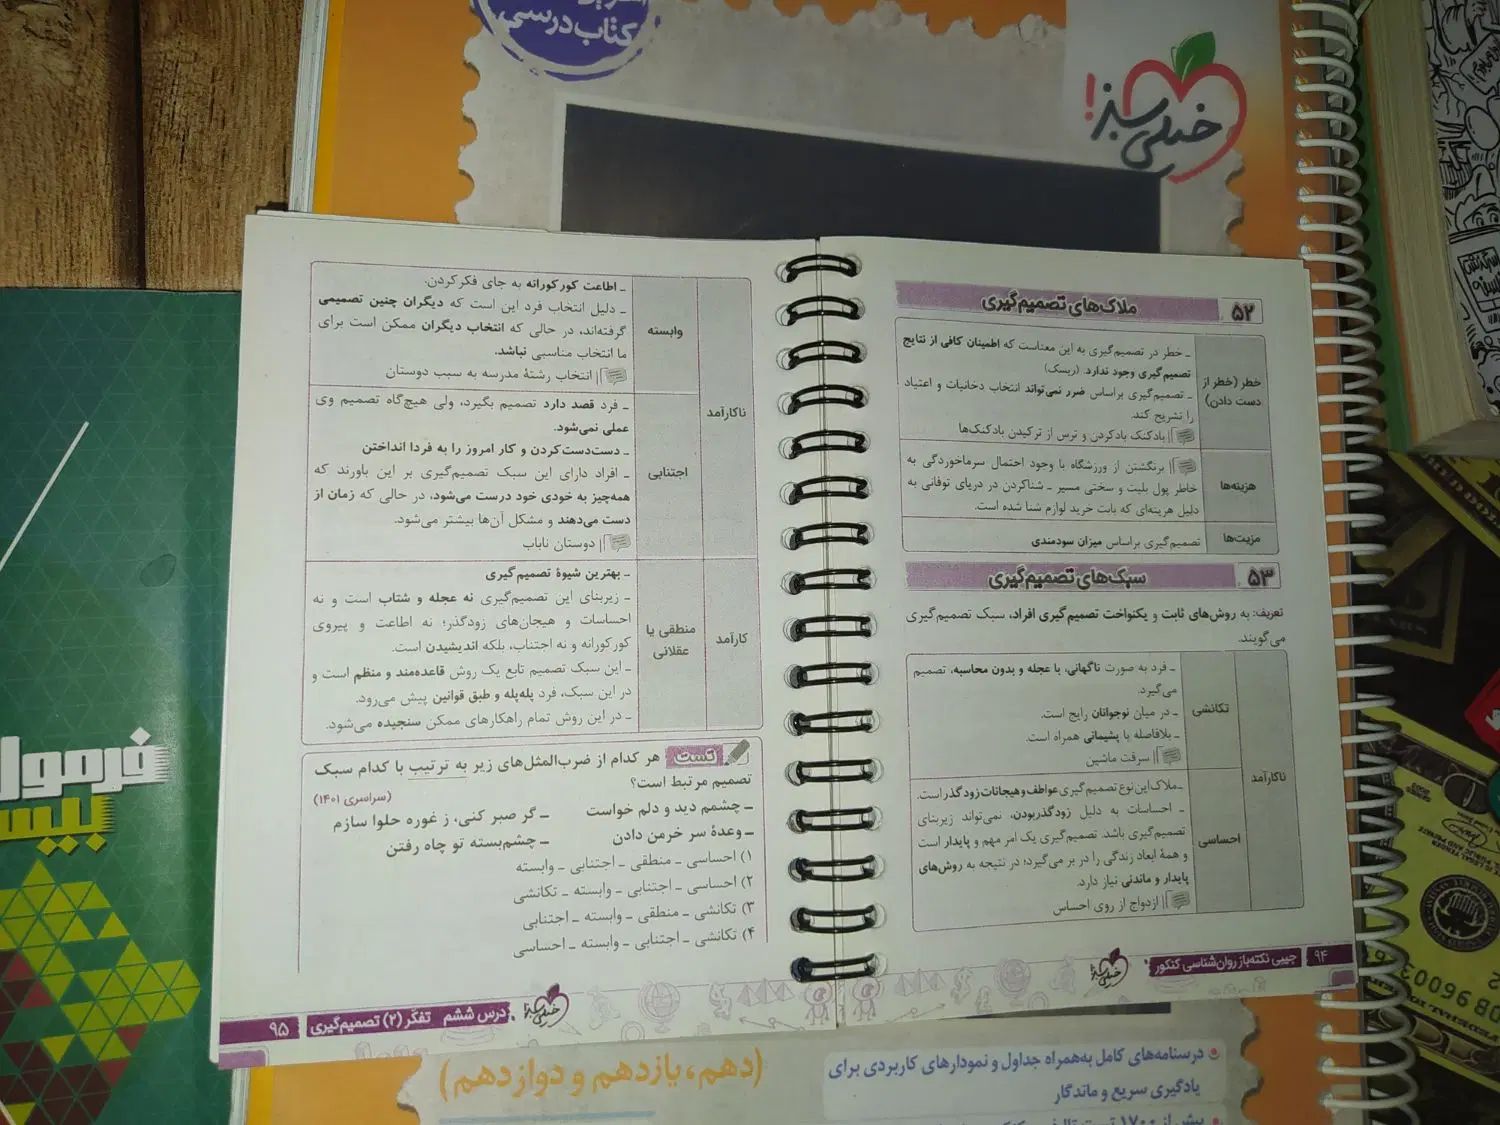 کتاب درسی
خیلی سبز!
۵۲ ملاک‌های تصمیم‌گیری
خطر (خطر از دست دادن)
ـ خطر در تصمیم‌گیری به این معناست که اطمینان کافی از نتایج
تصمیم‌گیری وجود ندارد. (ریسک)
ـ تصمیم‌گیری براساس ضرر نمی‌تواند انتخاب دخانیات و اعتیاد
را تشریح کند.
بادکنک بادکردن و ترس از ترکیدن بادکنک‌ها
هزینه‌ها
برنگشتن از ورزشگاه با وجود احتمال سرماخوردگی به
خاطر پول بلیت و سختی مسیر ـ شناکردن در دریای توفانی به
دلیل هزینه‌ای که بابت خرید لوازم شنا شده است.
مزیت‌ها
تصمیم‌گیری براساس میزان سودمندی
۵۳ سبک‌های تصمیم‌گیری
تعریف: به روش‌های ثابت و یکنواخت تصمیم‌گیری افراد، سبک تصمیم‌گیری
می‌گویند.
ناکارآمد
تکانشی
ـ فرد به صورت ناگهانی، با عجله و بدون محاسبه، تصمیم
می‌گیرد.
ـ در میان نوجوانان رایج است.
ـ بلافاصله با پشیمانی همراه است.
سرقت ماشین
احساسی
ـ ملاک این نوع تصمیم‌گیری عواطف و هیجانات زودگذر است.
ـ احساسات به دلیل زودگذربودن، نمی‌تواند زیربنای
تصمیم‌گیری باشد. تصمیم‌گیری یک امر مهم و پایدار است
و همهٔ ابعاد زندگی را در بر می‌گیرد؛ در نتیجه به روش‌های
پایدار و ماندنی نیاز دارد.
ازدواج از روی احساس
۹۴ جیبی نکته‌باز روان‌شناسی کنکور
خیلی سبز
ناکارآمد
وابسته
ـ اطاعت کورکورانه به جای فکرکردن.
ـ دلیل انتخاب فرد این است که دیگران چنین تصمیمی
گرفته‌اند، در حالی که انتخاب دیگران ممکن است برای
ما انتخاب مناسبی نباشد.
انتخاب رشتهٔ مدرسه به سبب دوستان
اجتنابی
ـ فرد قصد دارد تصمیم بگیرد، ولی هیچ‌گاه تصمیم وی
عملی نمی‌شود.
ـ دست‌دست‌کردن و کار امروز را به فردا انداختن
ـ افراد دارای این سبک تصمیم‌گیری بر این باورند که
همه‌چیز به خودی خود درست می‌شود، در حالی که زمان از
دست می‌دهند و مشکل آن‌ها بیشتر می‌شود.
دوستان ناباب
کارآمد
منطقی یا عقلانی
ـ بهترین شیوهٔ تصمیم‌گیری
ـ زیربنای این تصمیم‌گیری نه عجله و شتاب است و نه
احساسات و هیجان‌های زودگذر؛ نه اطاعت و پیروی
کورکورانه و نه اجتناب، بلکه اندیشیدن است.
ـ این سبک تصمیم تابع یک روش قاعده‌مند و منظم است و
در این سبک، فرد پله‌پله و طبق قوانین پیش می‌رود.
ـ در این روش تمام راهکارهای ممکن سنجیده می‌شود.
تست هر کدام از ضرب‌المثل‌های زیر به ترتیب با کدام سبک
تصمیم مرتبط است؟
(سراسری ۱۴۰۱)
ـ چشمم دید و دلم خواست ـ گر صبر کنی، ز غوره حلوا سازم
ـ وعدهٔ سر خرمن دادن ـ چشم‌بسته تو چاه رفتن
۱) احساسی ـ منطقی ـ اجتنابی ـ وابسته
۲) احساسی ـ اجتنابی ـ وابسته ـ تکانشی
۳) تکانشی ـ منطقی ـ وابسته ـ اجتنابی
۴) تکانشی ـ اجتنابی ـ وابسته ـ احساسی
خیلی سبز
درس ششم تفکر (۲) تصمیم‌گیری ۹۵
فرمول
بیس
درسنامه‌های کامل به‌همراه جداول و نمودارهای کاربردی برای
یادگیری سریع و ماندگار
(دهم، یازدهم و دوازدهم)